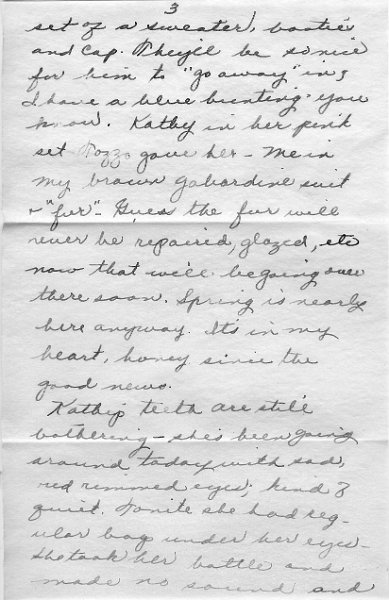 3
set of a sweater, bootie
and cap. They'll be so nice
for him to "go away" in &
I have a blue bunting you
know. Kathy in her pink
set Pozzo gave her - Me in
my brown gabardine suit
+ "fur" - Guess the fur will
never be repaired, glazed, etc
now that we'll be going over
there soon. Spring is nearly
here anyway. It's in my
heart, honey since the
good news.
Kathy's teeth are still
bothering - she's been going
around today with sad,
red rimmed eyes, kind of
quiet. Tonite she had reg-
ular bags under her eyes -
She took her bottle and
made no sound and